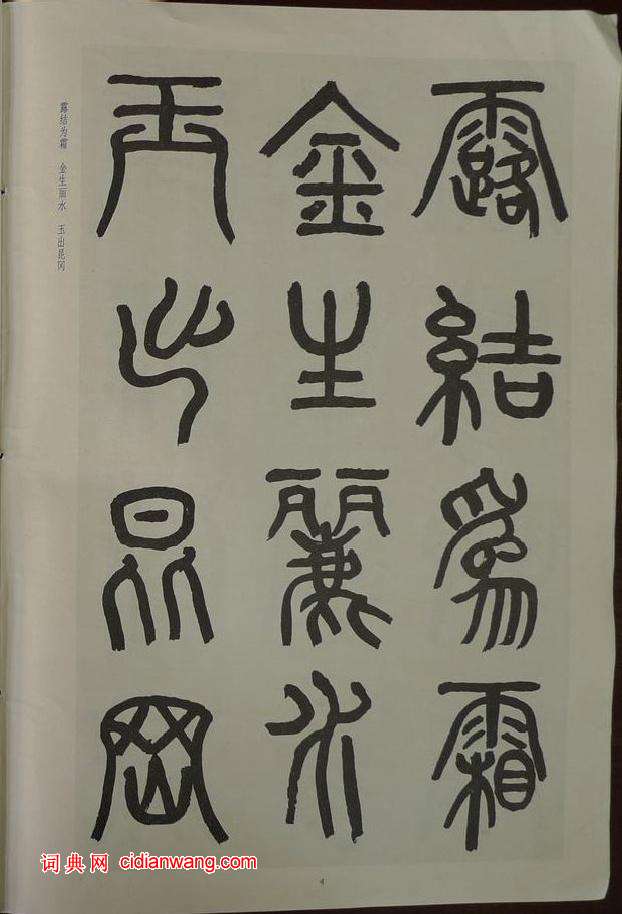 露結為霜
金生麗水
玉出昆岡
露结为霜 金生丽水 玉出昆冈
4
词典网 cidianwang.com